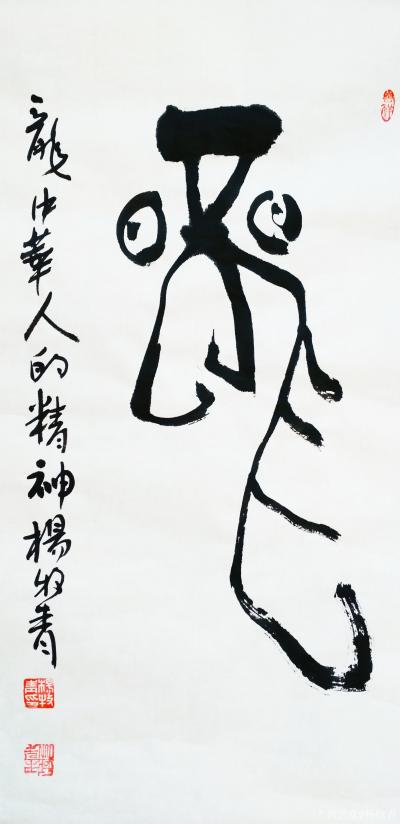 龍
龍中華人的精神楊牧青